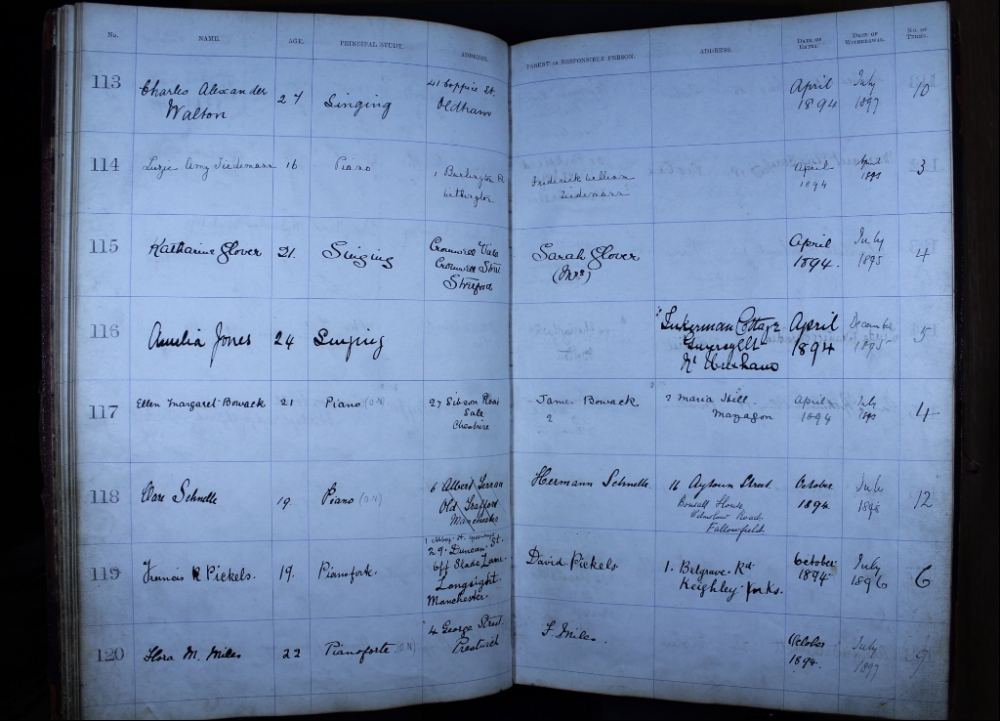 No. NAME. AGE. PRINCIPAL STUDY. ADDRESS. PARENT OR RESPONSIBLE PERSON. ADDRESS. DATE OF ENTRY. DATE OF WITHDRAWAL. NO. OF TERMS.
113 Charles Alexander Walton 27 Singing 41 Coppice St. Oldham April 1894 July 1897 10
114 Amy Tiedemann 16 Piano 1 Burlington R Withington Frederick William Tiedemann April 1894 April 1895 3
115 Katharine Glover 21. Singing Stretford Sarah Glover (Mrs) April 1894. July 1895 4
116 Amelia Jones 24 Singing Inkerman Cottage Gwersyllt Nr Wrexham April 1894 December 1895 5
117 Ellen Margaret Bowack 21 Piano (O.N) 27 Gibson Road Sale Cheshire James Bowack 2 ? Maria Hill Mazagon April 1894 July 1895 4
118 Schnelle 19. Piano (O.N) 6 Albert Terrace Old Trafford Manchester Hermann Schnelle 16 Aytoun Street Wilmslow Road Fallowfield. October 1894. July 1898 12
119 Francis R Pickels. 19. Pianoforte. 29. Duncan St. off Slade Lane Longsight. Manchester. David Pickels 1. Belgrave Rd. Keighley Yorks. October 1894 July 1896 6
120 Flora M. Miles 22 Pianoforte (O N) 4 George Street Prestwich F. Miles. October 1894. July 1897 9